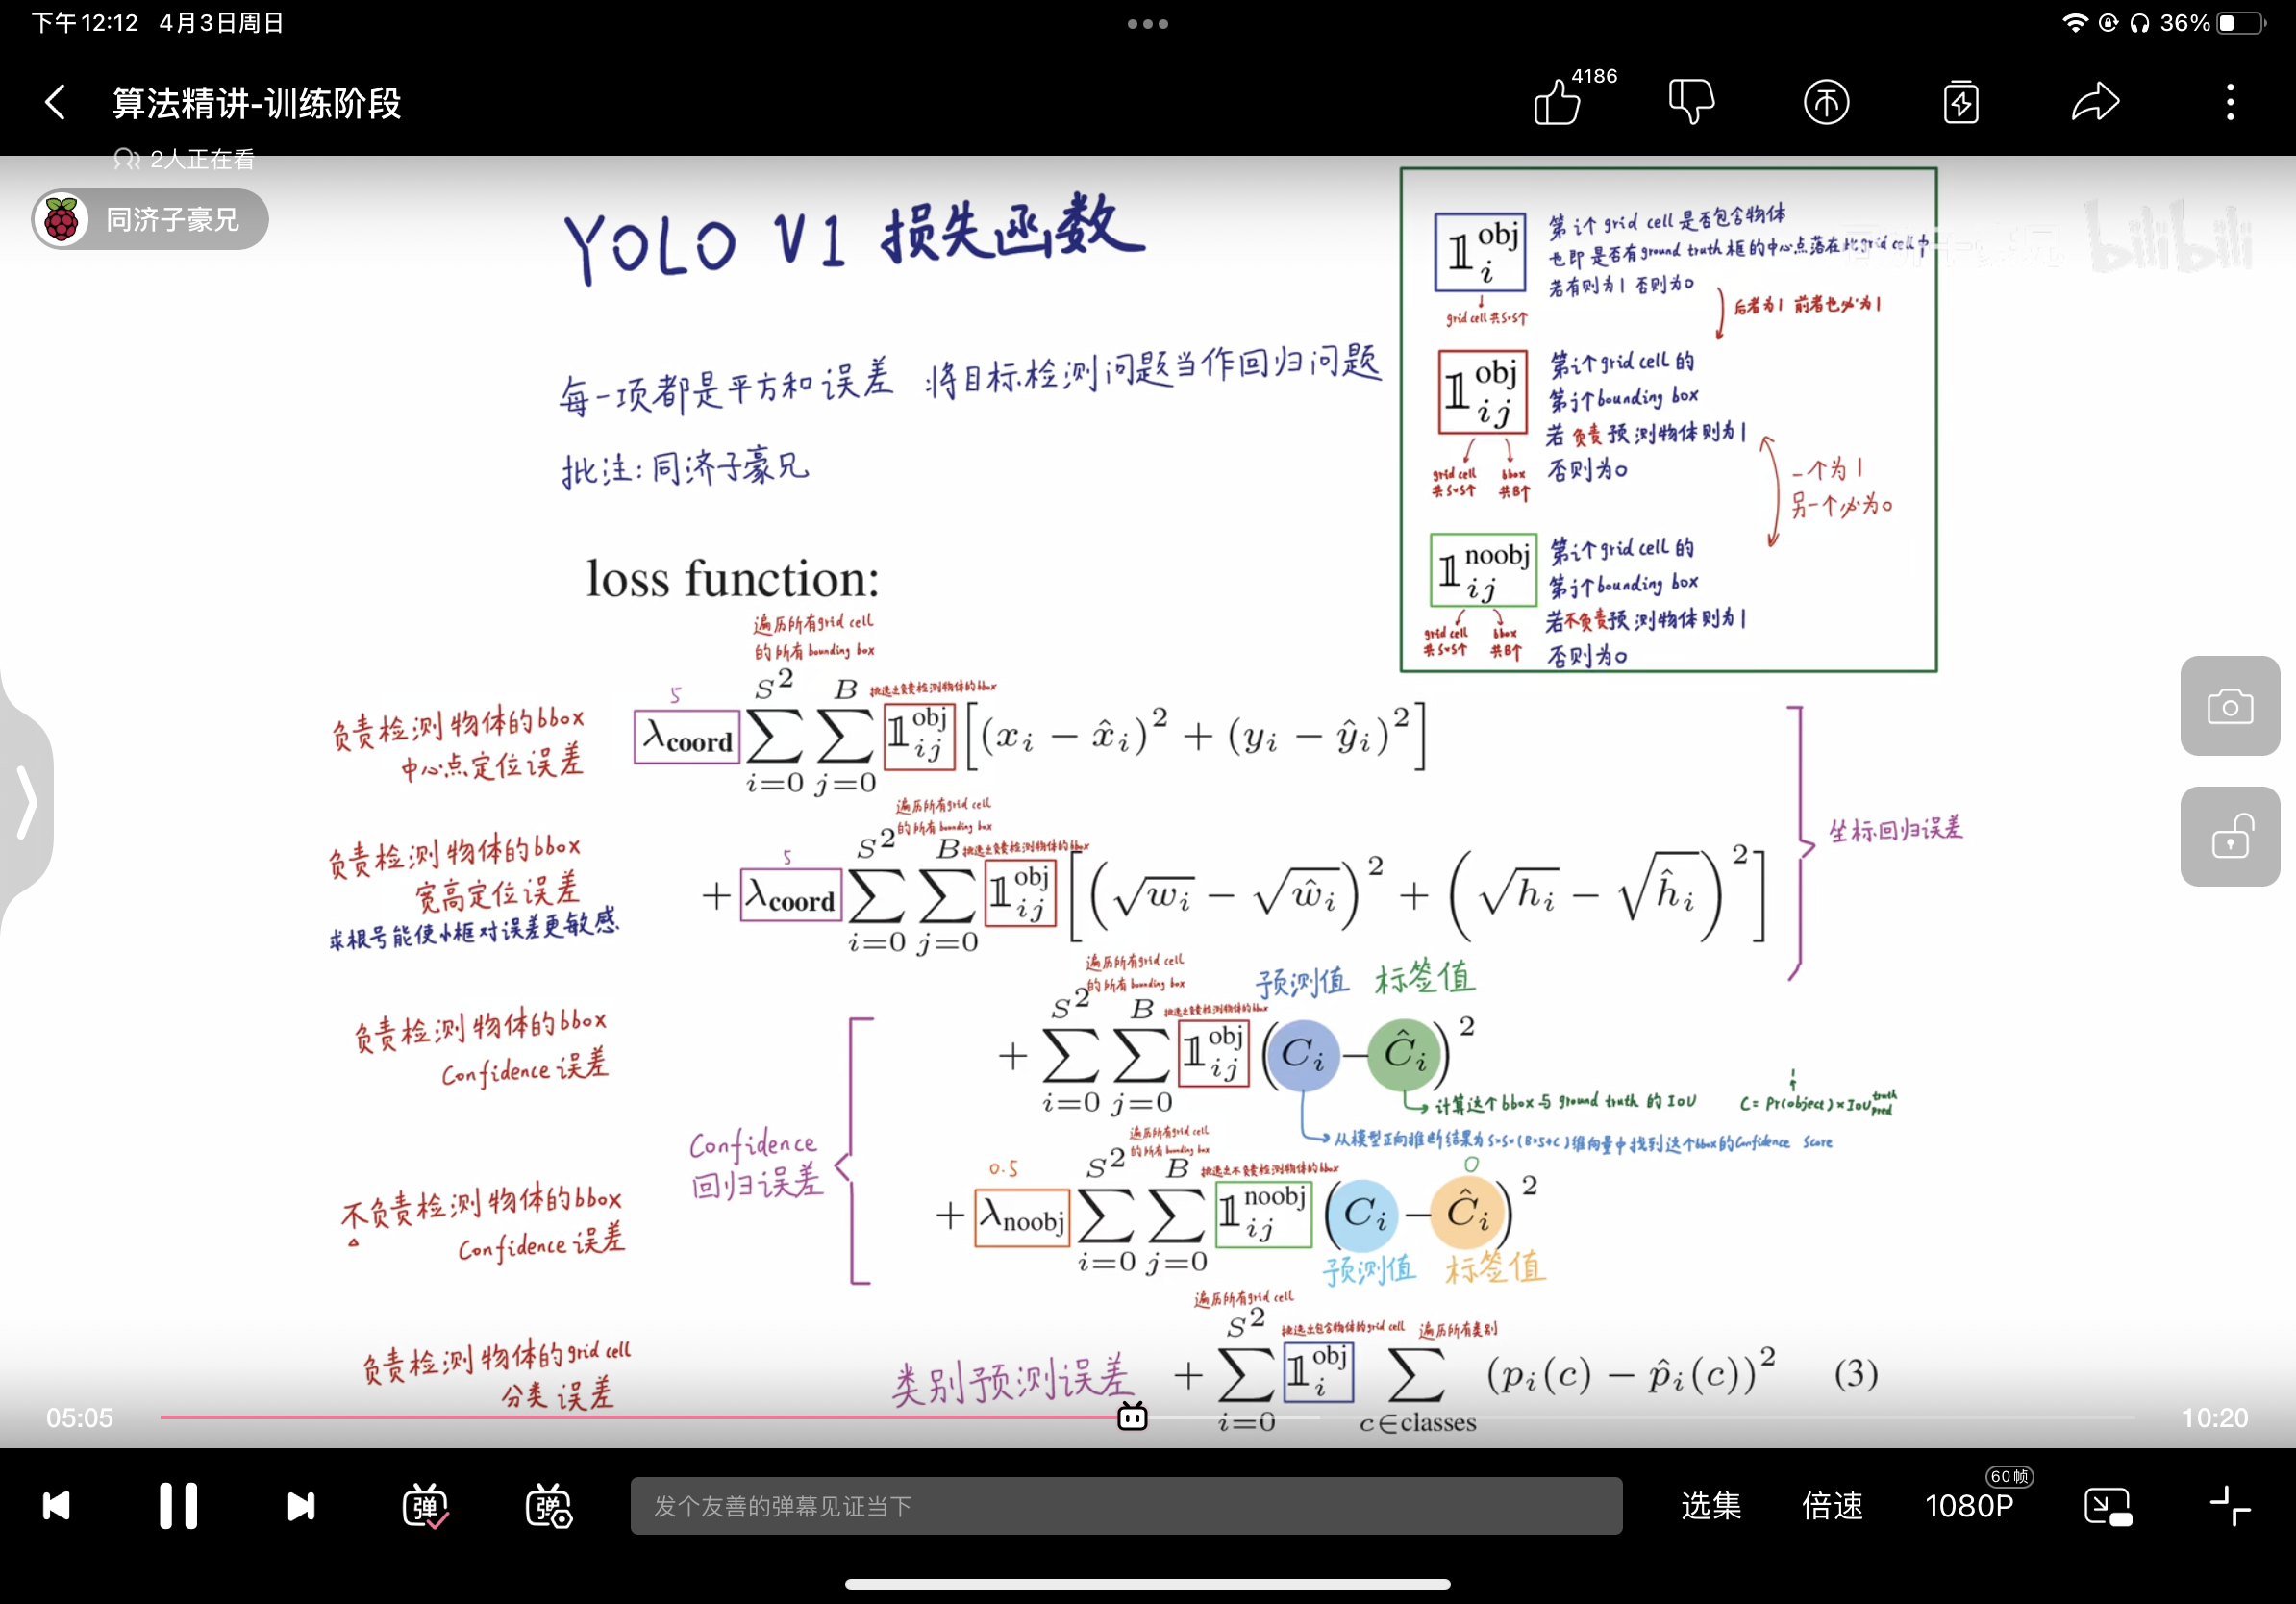 下午12:12 4月3日周日
36%
算法精讲-训练阶段
4186
2人正在看
同济子豪兄
bilibili
YOLO V1 损失函数
每一项都是平方和误差 将目标检测问题当作回归问题
批注:同济子豪兄
𝟙 obj i
第i个 grid cell 是否包含物体
也即是否有ground truth框的中心点落在此grid cell中
若有则为1 否则为0
grid cell 共S*S个
后者为1 前者也必为1
𝟙 obj ij
第i个grid cell 的
第j个bounding box
若负责预测物体则为1
否则为0
grid cell 共S*S个
bbox 共B个
一个为1
另一个必为0
𝟙 noobj ij
第i个grid cell 的
第j个bounding box
若不负责预测物体则为1
否则为0
grid cell 共S*S个
bbox 共B个
loss function:
遍历所有grid cell
的所有bounding box
挑选出负责检测物体的bbox
负责检测物体的bbox
中心点定位误差
5
λcoord ∑_{i=0}^{S²} ∑_{j=0}^{B} 𝟙_{ij}^{obj} [(x_i − x̂_i)² + (y_i − ŷ_i)²]
遍历所有grid cell
的所有bounding box
挑选出负责检测物体的bbox
负责检测物体的bbox
宽高定位误差
求根号能使小框对误差更敏感
5
+ λcoord ∑_{i=0}^{S²} ∑_{j=0}^{B} 𝟙_{ij}^{obj} [(√w_i − √ŵ_i)² + (√h_i − √ĥ_i)²]
坐标回归误差
遍历所有grid cell
的所有bounding box
挑选出负责检测物体的bbox
预测值 标签值
负责检测物体的bbox
Confidence 误差
+ ∑_{i=0}^{S²} ∑_{j=0}^{B} 𝟙_{ij}^{obj} (C_i − Ĉ_i)²
计算这个bbox与ground truth的IoU
C = Pr(object) × IoU truth pred
从模型正向推断结果为S*S*(B*5+C)维向量中找到这个bbox的Confidence Score
Confidence
回归误差
遍历所有grid cell
的所有bounding box
挑选出不负责检测物体的bbox
不负责检测物体的bbox
Confidence 误差
0.5
0
+ λnoobj ∑_{i=0}^{S²} ∑_{j=0}^{B} 𝟙_{ij}^{noobj} (C_i − Ĉ_i)²
预测值 标签值
遍历所有grid cell
挑选出包含物体的grid cell
遍历所有类别
负责检测物体的grid cell
分类误差
类别预测误差
+ ∑_{i=0}^{S²} 𝟙_{i}^{obj} ∑_{c∈classes} (p_i(c) − p̂_i(c))² (3)
05:05
10:20
弹
弹
发个友善的弹幕见证当下
选集
倍速
1080P
60帧